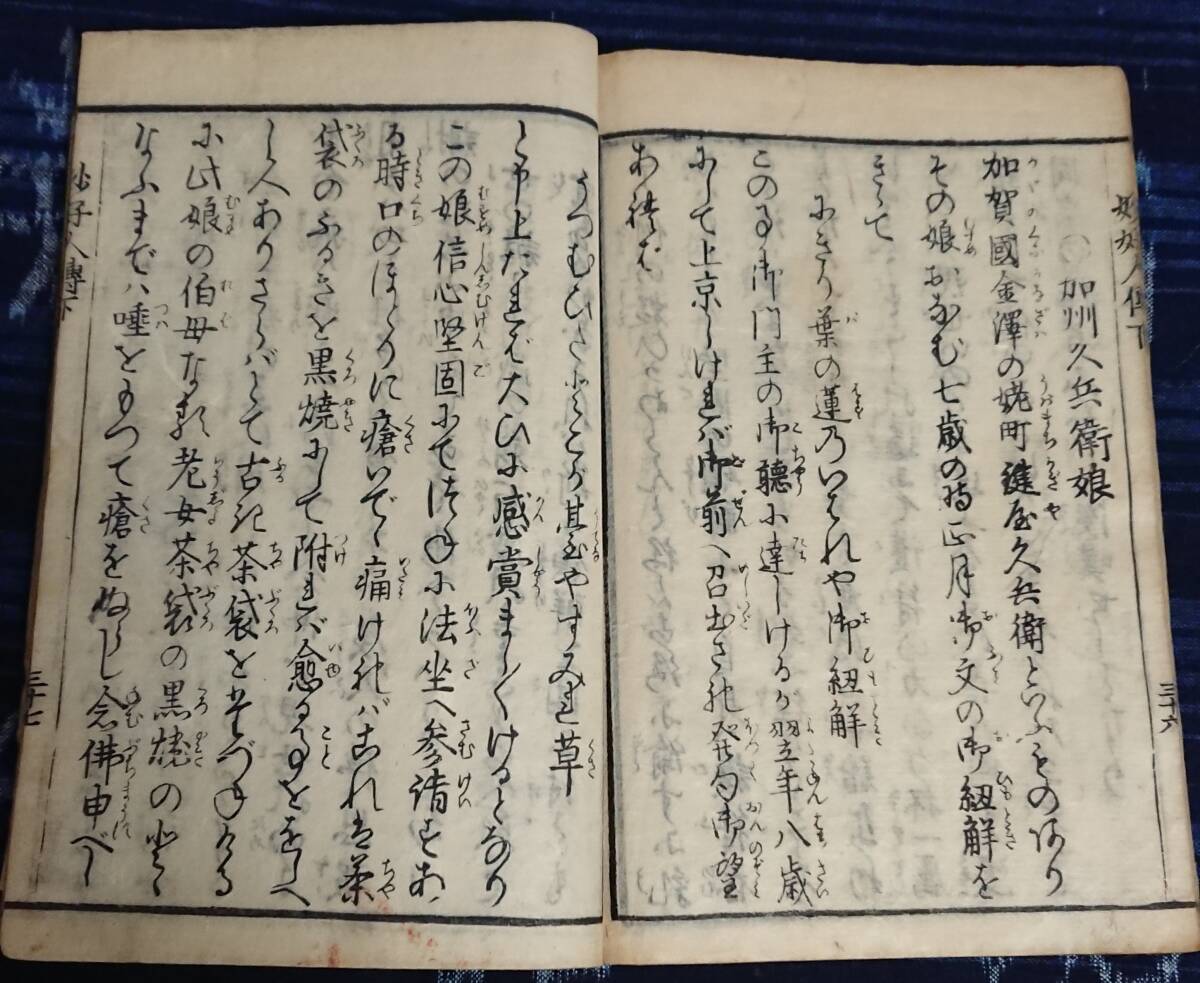 妙好人傳下
三十六
〇加州久兵衛娘
加賀國金澤の堀町鍵屋久兵衛といふものあり
その娘おなむ七歳の時正月御文の御紐解を
きゝて
にきり葉の蓮乃いはれや御紐解
この事御門主の御聴に達しけるが翌年八歳
にして上京しけれバ御前へ召出され発句御望
あれば
うつむひたところが其まゝやすみれ草
と申上たれば大ひに感賞まし〳〵けるとなり
この娘信心堅固にてつねに法坐へ参詣せしあ
る時口のほとりに瘡いでゝ痛けれバこれは茶
袋のふるきを黒焼にして附れバ愈る事を教へ
し人ありさらバとて古き茶袋をたづねける
に此娘の伯母なる老女茶袋の黒焼のとゝ
なふまでハ唾をもつて瘡をぬらし念佛申べし
妙好人傳下
三十七